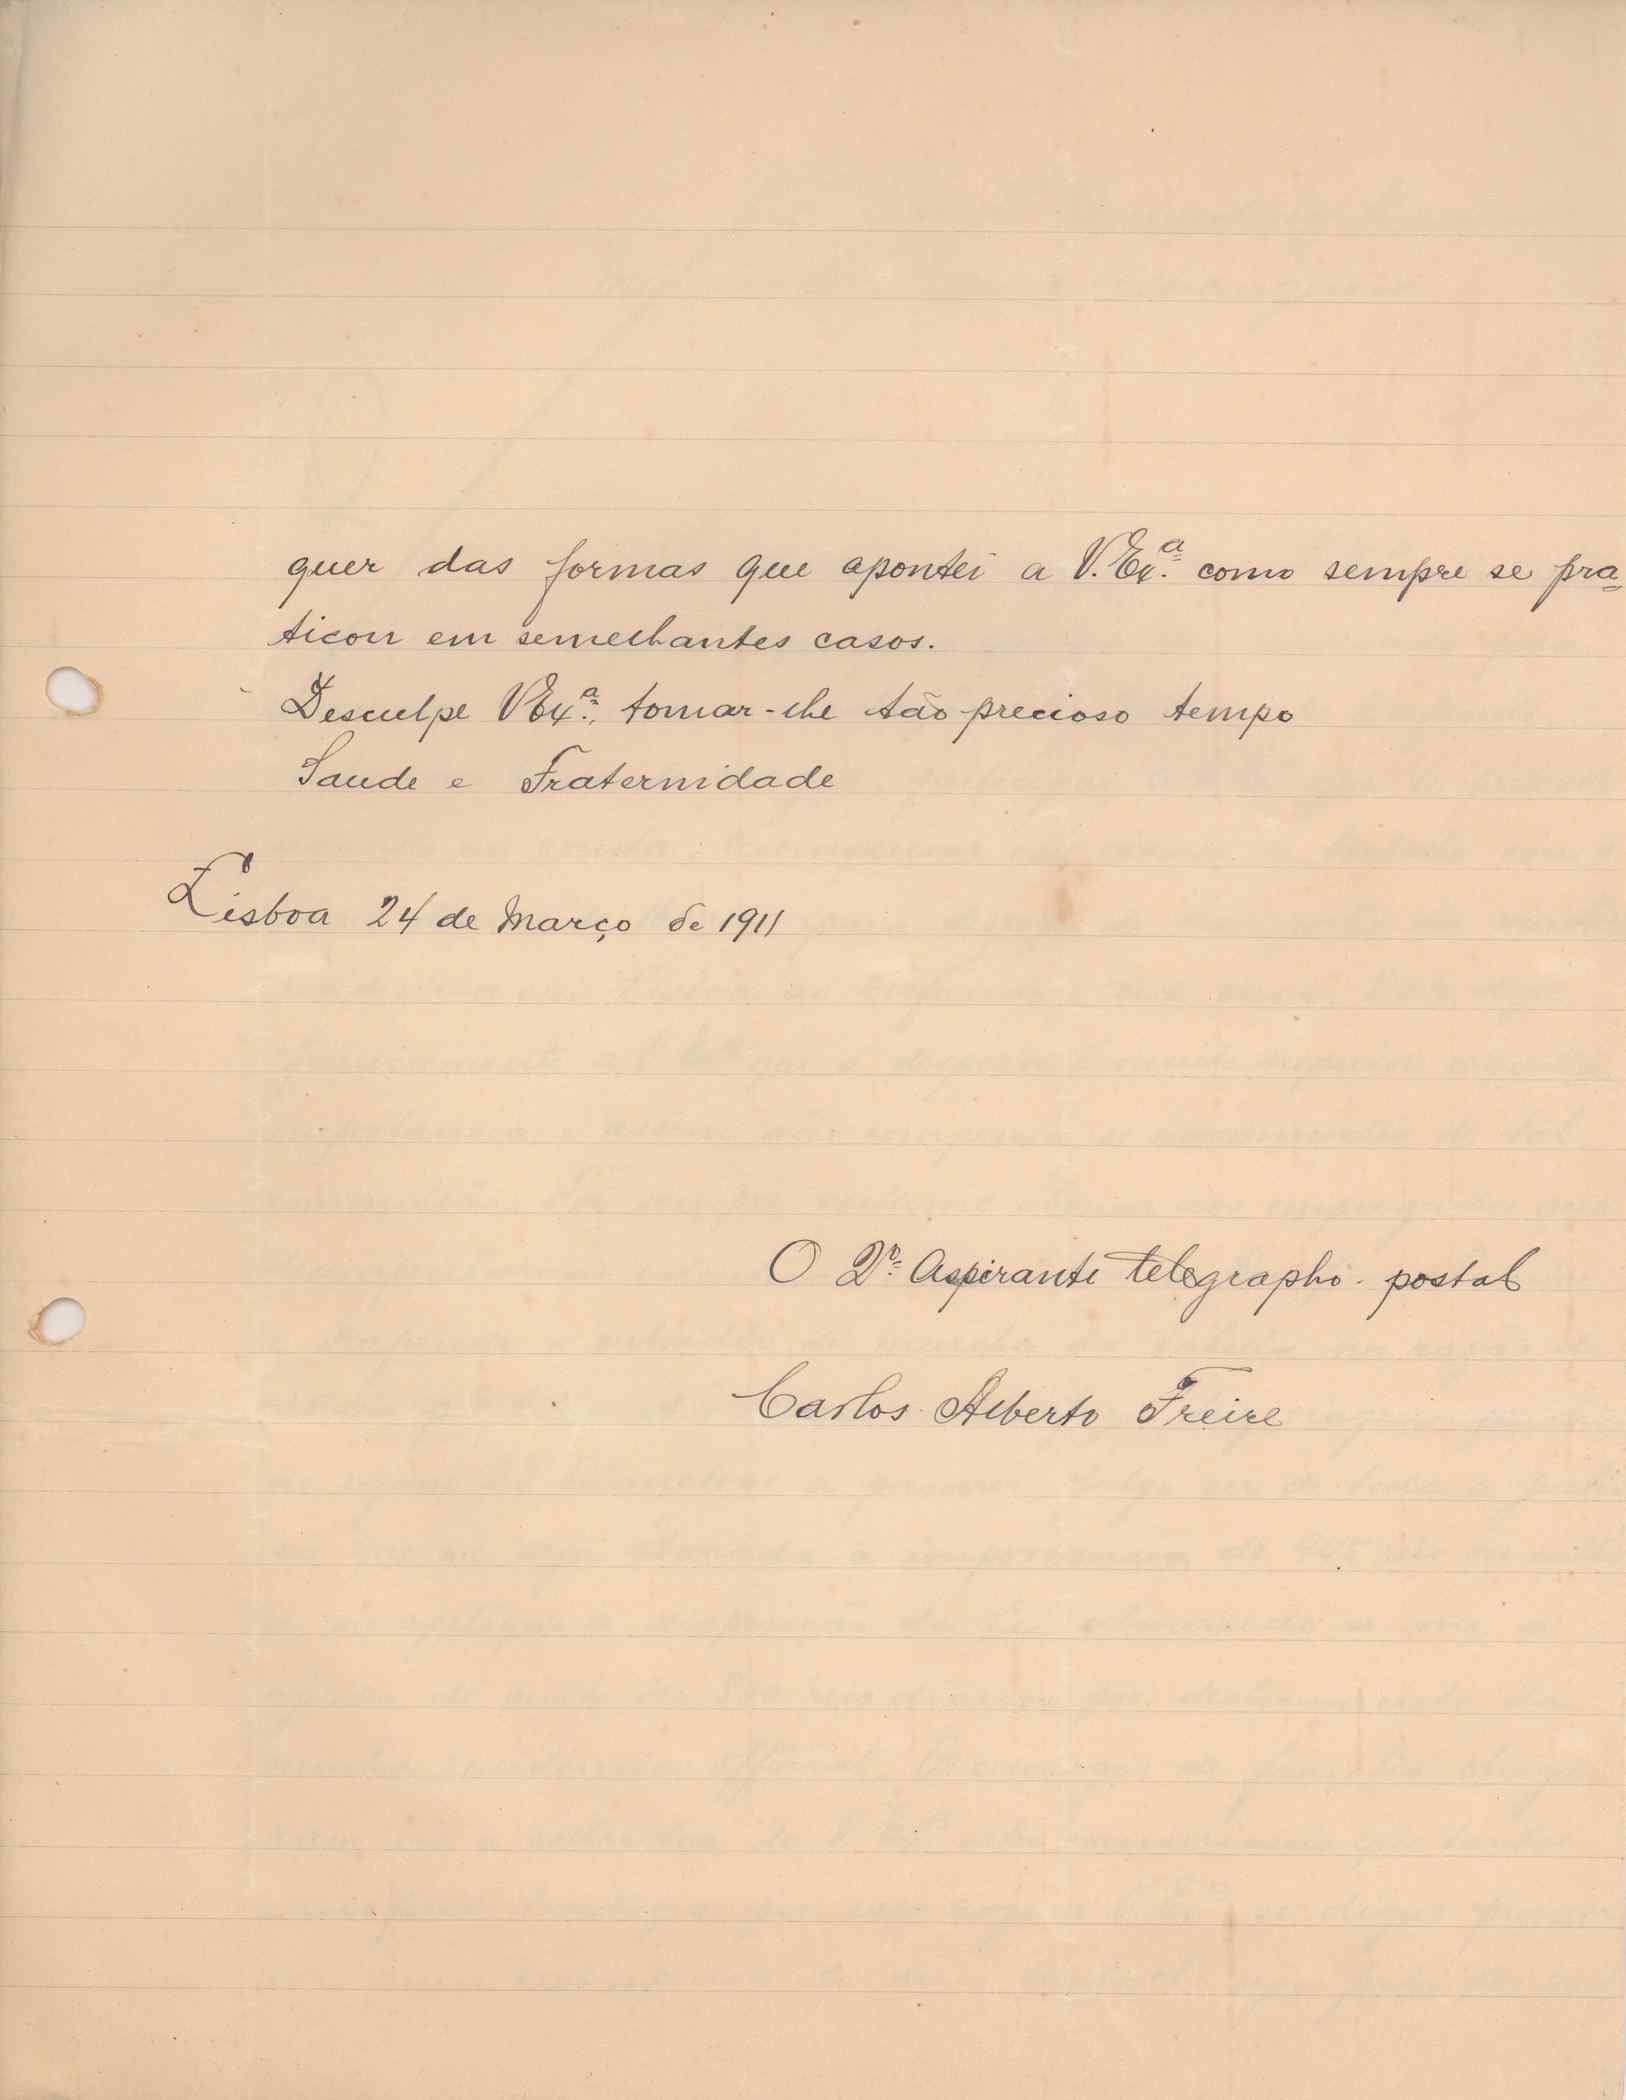 quer das formas que apontei a V. Ex.ª como sempre se pra=
ticou em semelhantes casos.
Desculpe V Ex.ª, tomar-lhe tão precioso tempo
Saude e Fraternidade
Lisboa 24 de Março de 1911
O 2º Aspirante telegrapho-postal
Carlos Alberto Freire